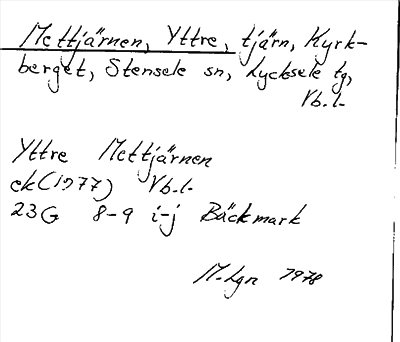 Mettjärnen, Yttre, tjärn, Kyrk-
berget, Stensele sn, Lycksele tg,
Vb.l.
Yttre Mettjärnen
ek(1977) Vb.l.
23G 8-9 i-j Bäckmark
M-Lgn 1978